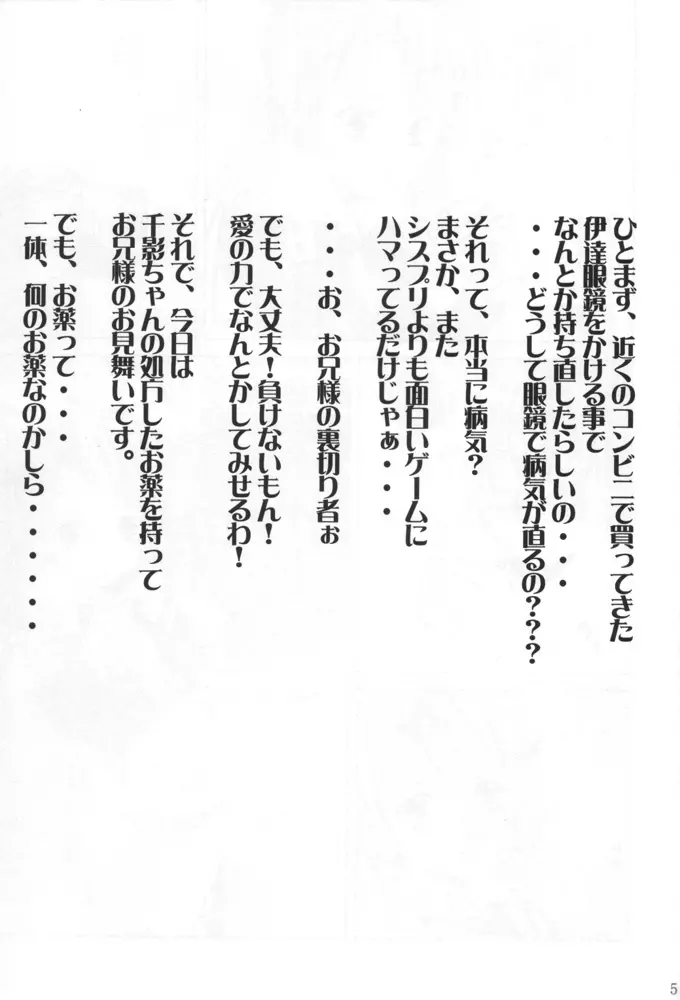 ひとまず、近くのコンビニで買ってきた
伊達眼鏡をかける事で
なんとか持ち直したらしいの・・・
・・・どうして眼鏡で病気が直るの???
それって、本当に病気?
まさか、また
シスプリよりも面白いゲームに
ハマってるだけじゃぁ・・・
・・・お、お兄様の裏切り者ぉ
でも、大丈夫!負けないもん!
愛の力でなんとかしてみせるわ!
それで、今日は
千影ちゃんの処方したお薬を持って
お兄様のお見舞いです。
でも、お薬って・・・
一体、何のお薬なのかしら・・・・・・
5